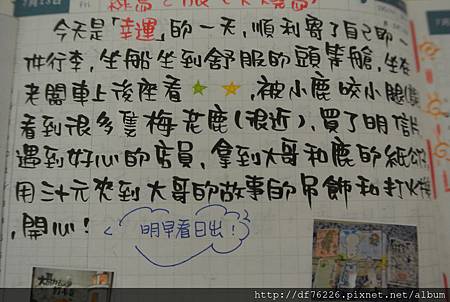 7月13日
今天是「幸運」的一天,順利寄了自己的一
件行李,坐船坐到舒服的頭等艙,坐在
老闆車上後座看★★,被小鹿咬小腿
看到很多隻梅老鹿(很近),買了明信片
遇到好心的店員,拿到大哥和鹿的紙
用三十元夾到大哥的故事的吊飾和打火機
,開心!
明早看日出!
http://df76226.pixnet.net/album